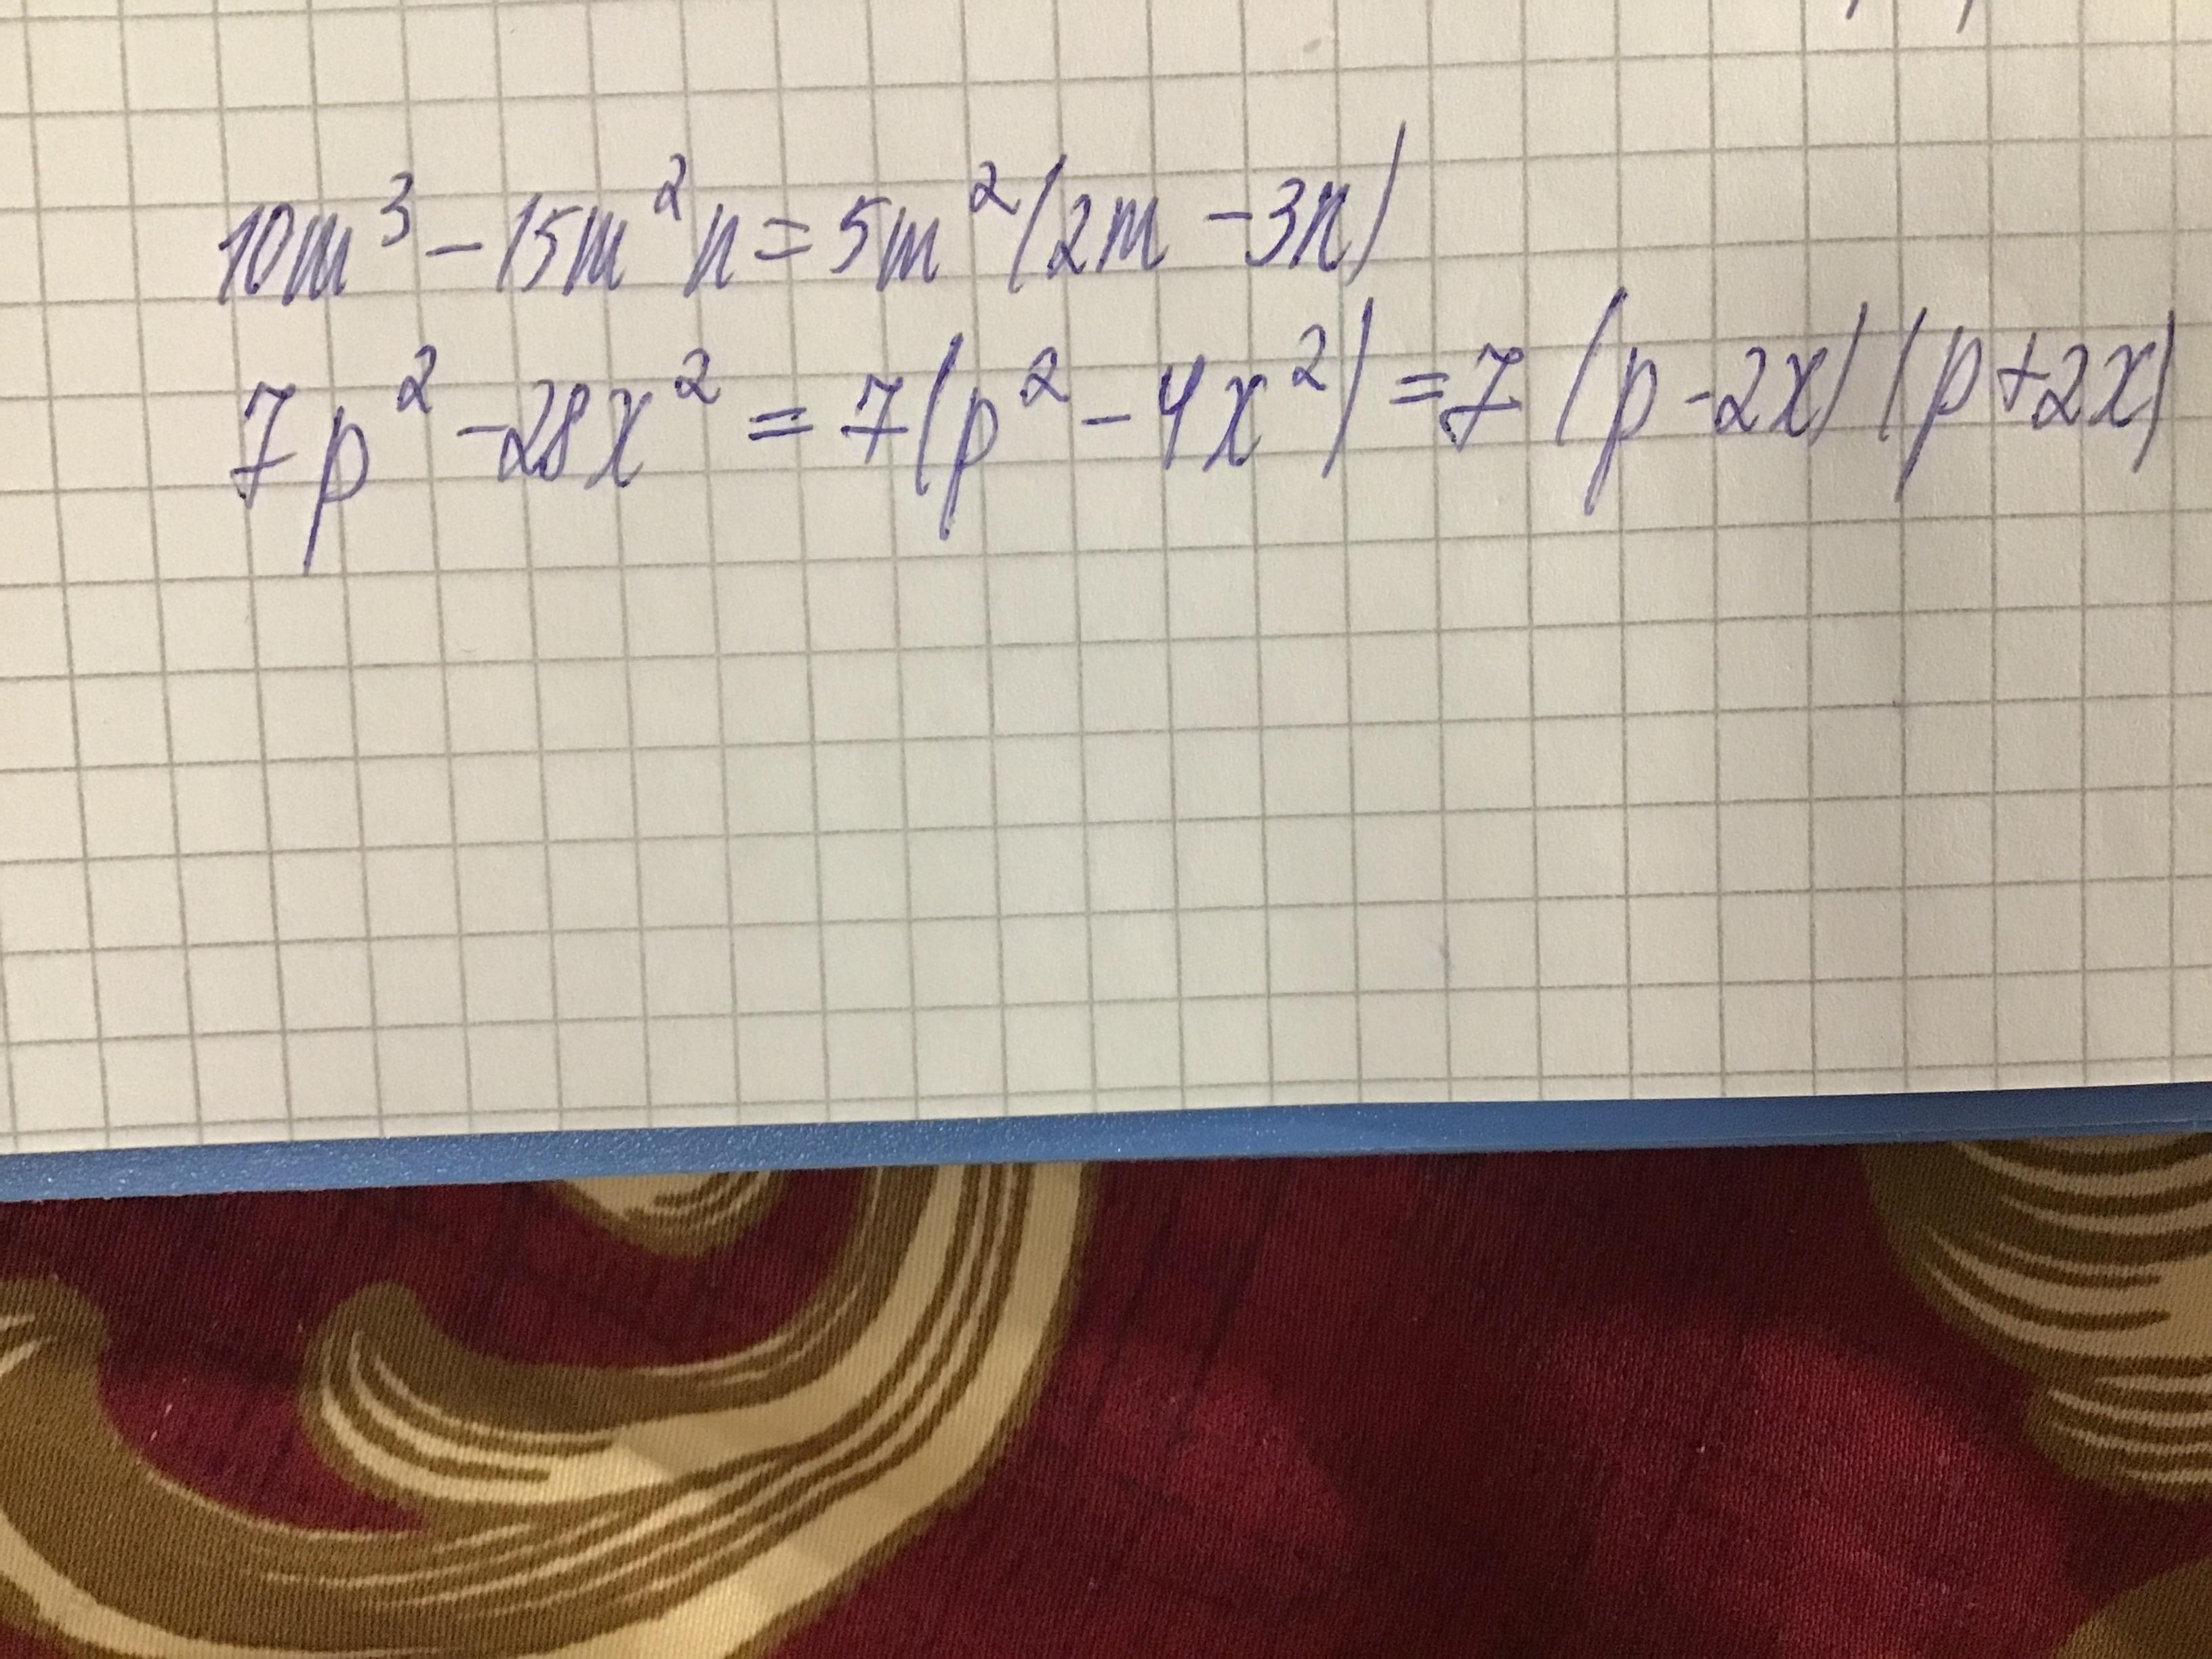 10m³ - 15m²n = 5m²(2m - 3n)
7p² - 28x² = 7(p² - 4x²) = 7(p - 2x)(p + 2x)